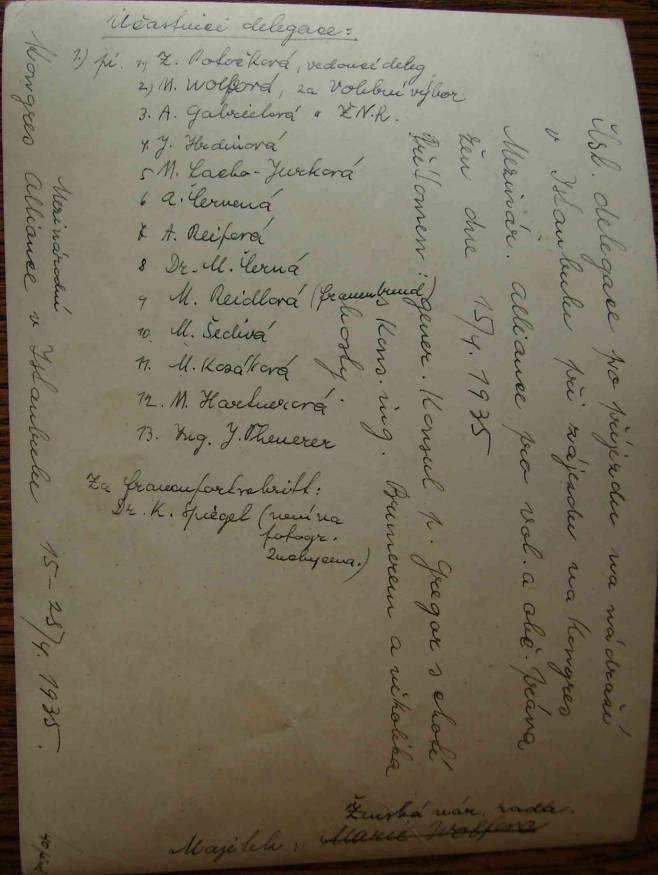 Účastnici delegace:
1.) pí. 1) Z. Potočková, vedoucí deleg
2.) M. Wolfová, za Volební výbor
3. A. Gabrielová " Ž.N.R.
4 J. Hrdinová
5 M. Lacko-Jurková
6 A. Červená
7 A. Reifová
8 Dr. M. Černá
9 M. Reidlová (frauenbund)
10. M. Šedivá
11. M. Kozáková
12. M. Hartnerová
13. Ing. J. Theurer
Za frauenfortschritt:
Dr. K. Spiegel (není na
fotogr.
zachycena.)
Čsl. delegace po příjezdu na nádraží
v Istanbulu při zájezdu na Kongres
Mezinár. Alliance pro vol. a obč. práva
žen dne 15/4. 1935
Přítomen: gener. Konsul p. Gregor s chotí
s Kons. ing. Brumerem a několika
hosty.
Mezinárodní
Kongres Alliance v Istanbulu 15-25/4. 1935.
Ženská nár. rada.
Majetek: Marie Wolfová